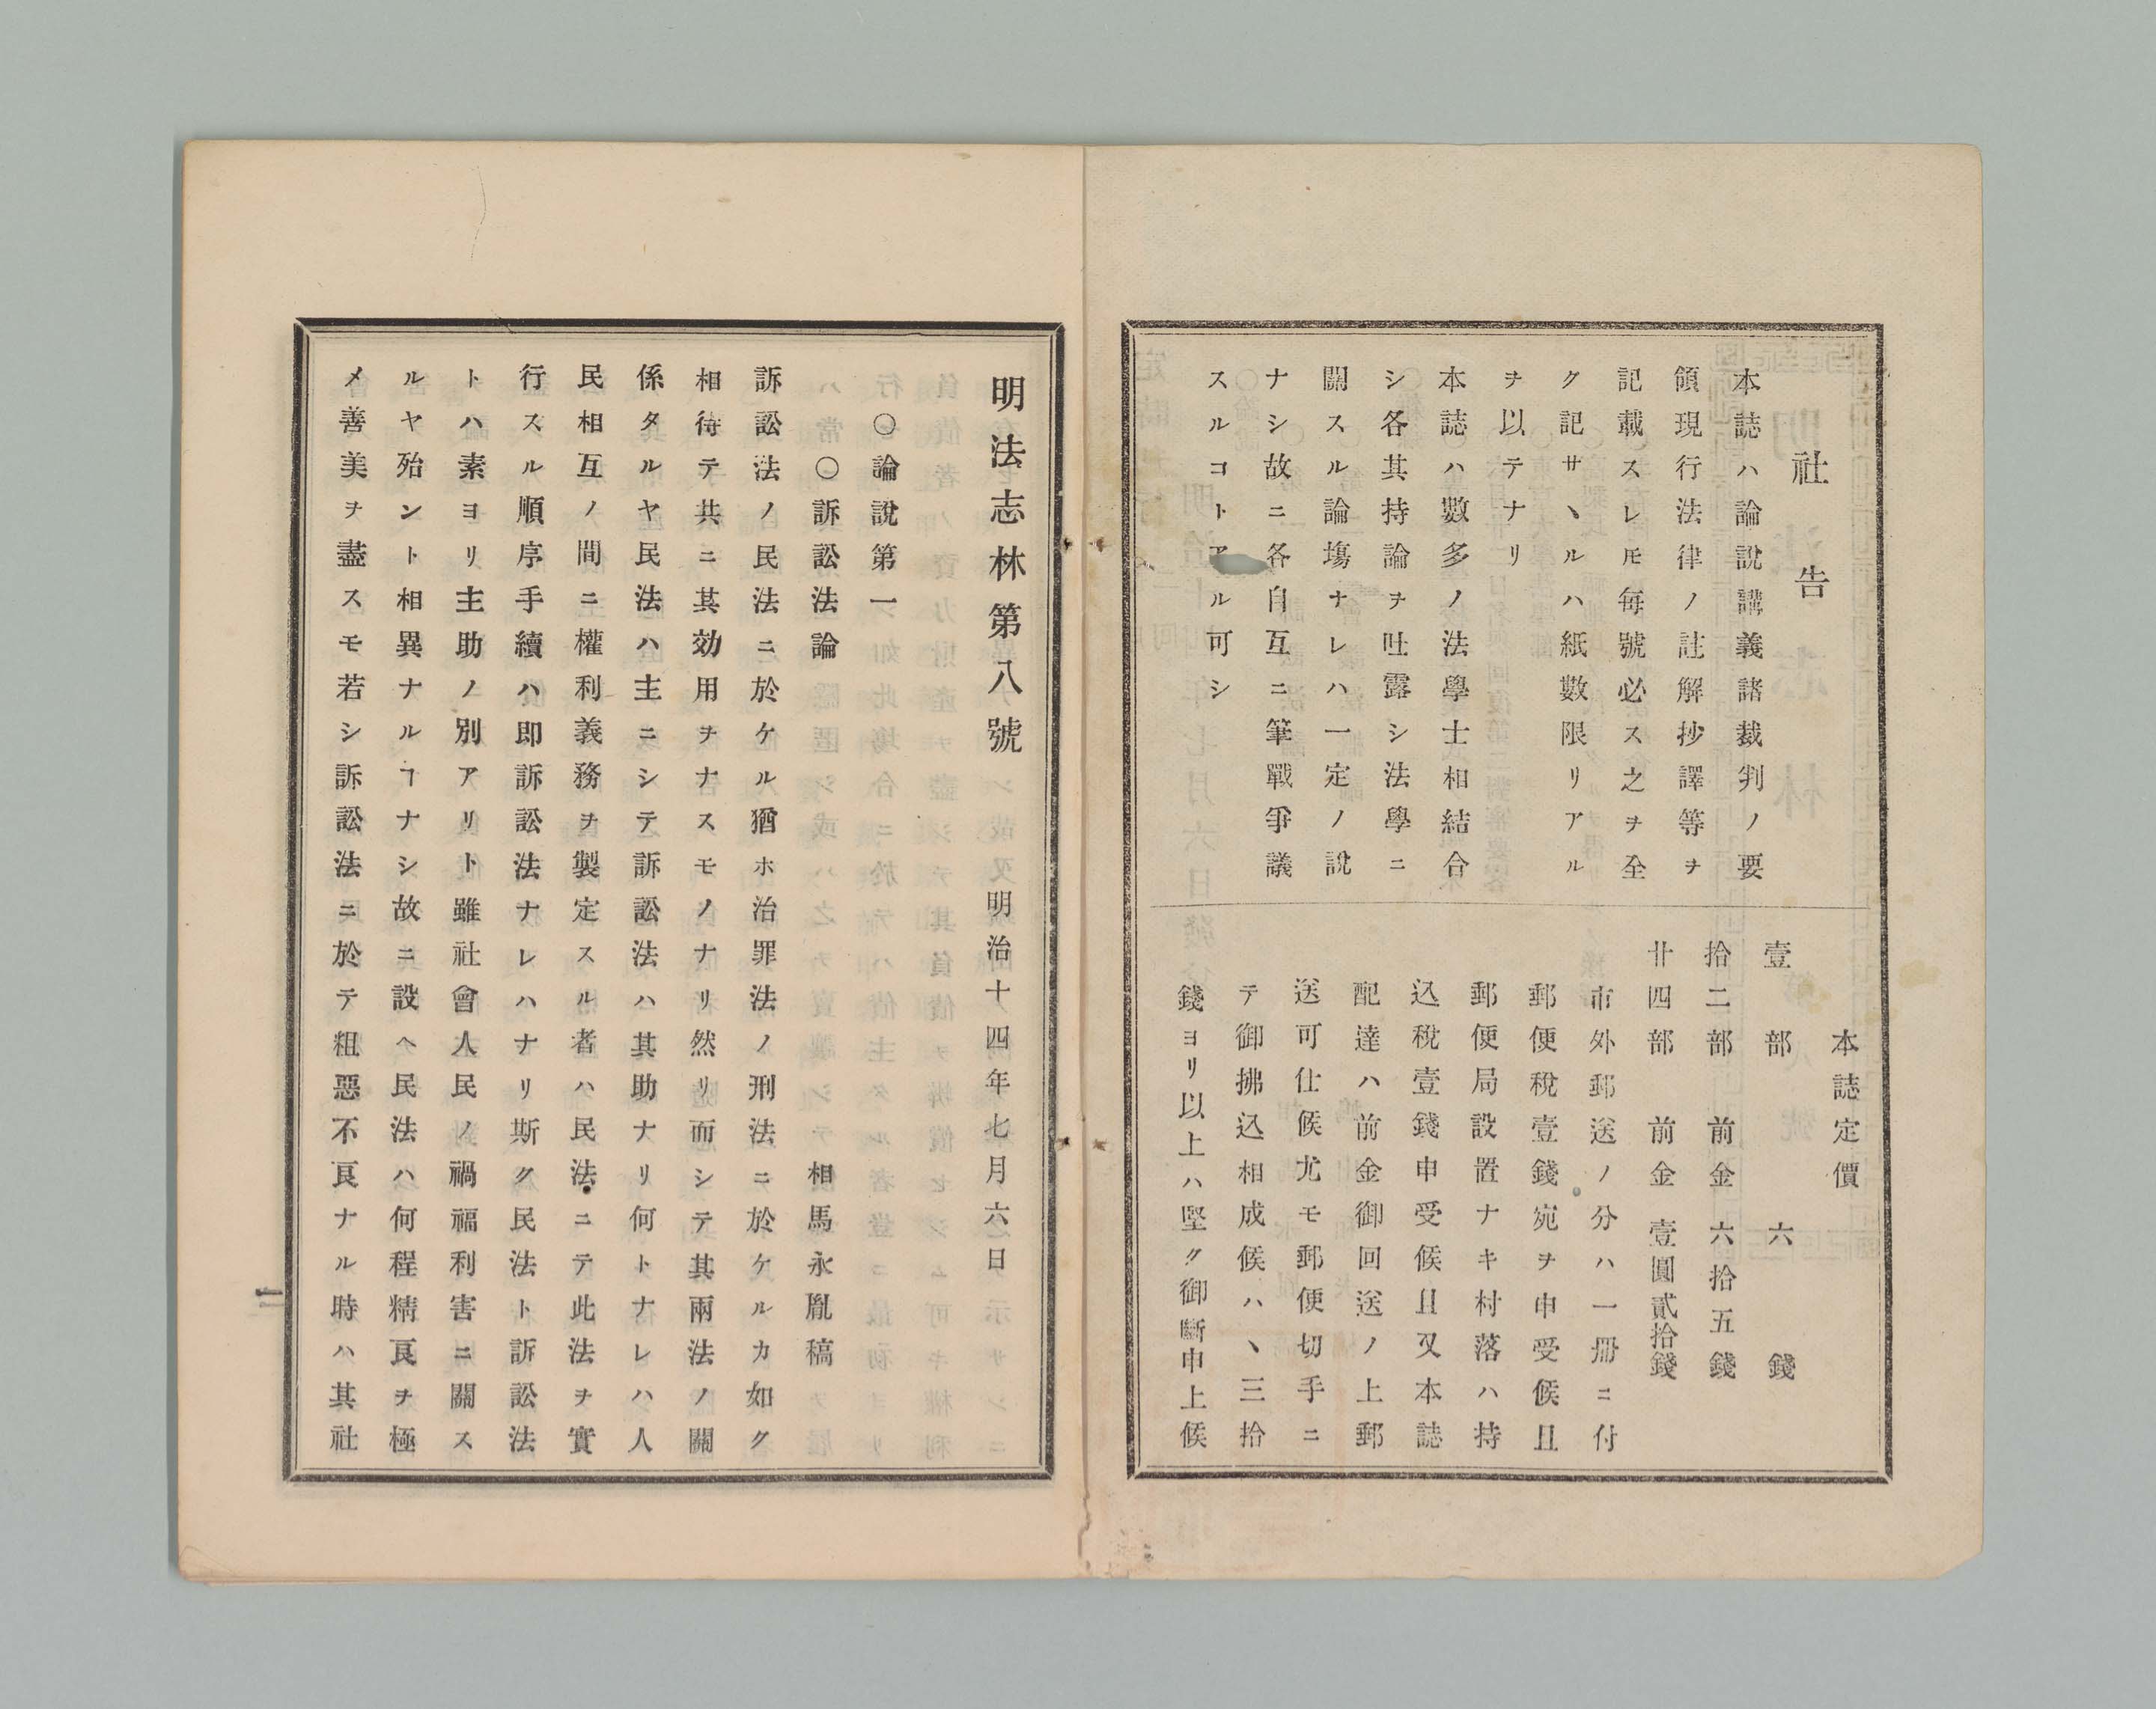 社告
本誌ハ論說講義諸裁判ノ要
領現行法律ノ註解抄譯等ヲ
記載スレ𪜈毎號必ス之ヲ全
ク記サヽルハ紙數限リアル
ヲ以テナリ
本誌ハ數多ノ法學士相結合
シ各其持論ヲ吐露シ法學ニ
關スル論塲ナレハ一定ノ說
ナシ故ニ各自互ニ筆戰爭議
スルコトアル可シ
本誌定價
壹部 六錢
拾二部 前金 六拾五錢
廿四部 前金 壹圓貳拾錢
市外郵送ノ分ハ一冊ニ付
郵便稅壹錢宛ヲ申受候且
郵便局設置ナキ村落ハ持
込稅壹錢申受候且又本誌
配達ハ前金御回送ノ上郵
送可仕候尤モ郵便切手ニ
テ御拂込相成候ハヽ三拾
錢ヨリ以上ハ堅ク御斷申上候
明法志林第八號 明治十四年七月六日
○論說第一
○訴訟法論 相馬永胤稿
訴訟法ノ民法ニ於ケル猶ホ治罪法ノ刑法ニ於ケルカ如ク
相待テ共ニ其効用ヲナスモノナリ然リ而シテ其兩法ノ關
係タルヤ民法ハ主ニシテ訴訟法ハ其助ナリ何トナレハ人
民相互ノ間ニ權利義務ヲ製定スル者ハ民法ニテ此法ヲ實
行スル順序手續ハ即訴訟法ナレハナリ斯ク民法ト訴訟法
トハ素ヨリ主助ノ別アリト雖社會人民ノ禍福利害ニ關ス
ルヤ殆ント相異ナルヿナシ故ニ設ヘ民法ハ何程精良ヲ極
メ善美ヲ盡スモ若シ訴訟法ニ於テ粗惡不良ナル時ハ其社
一